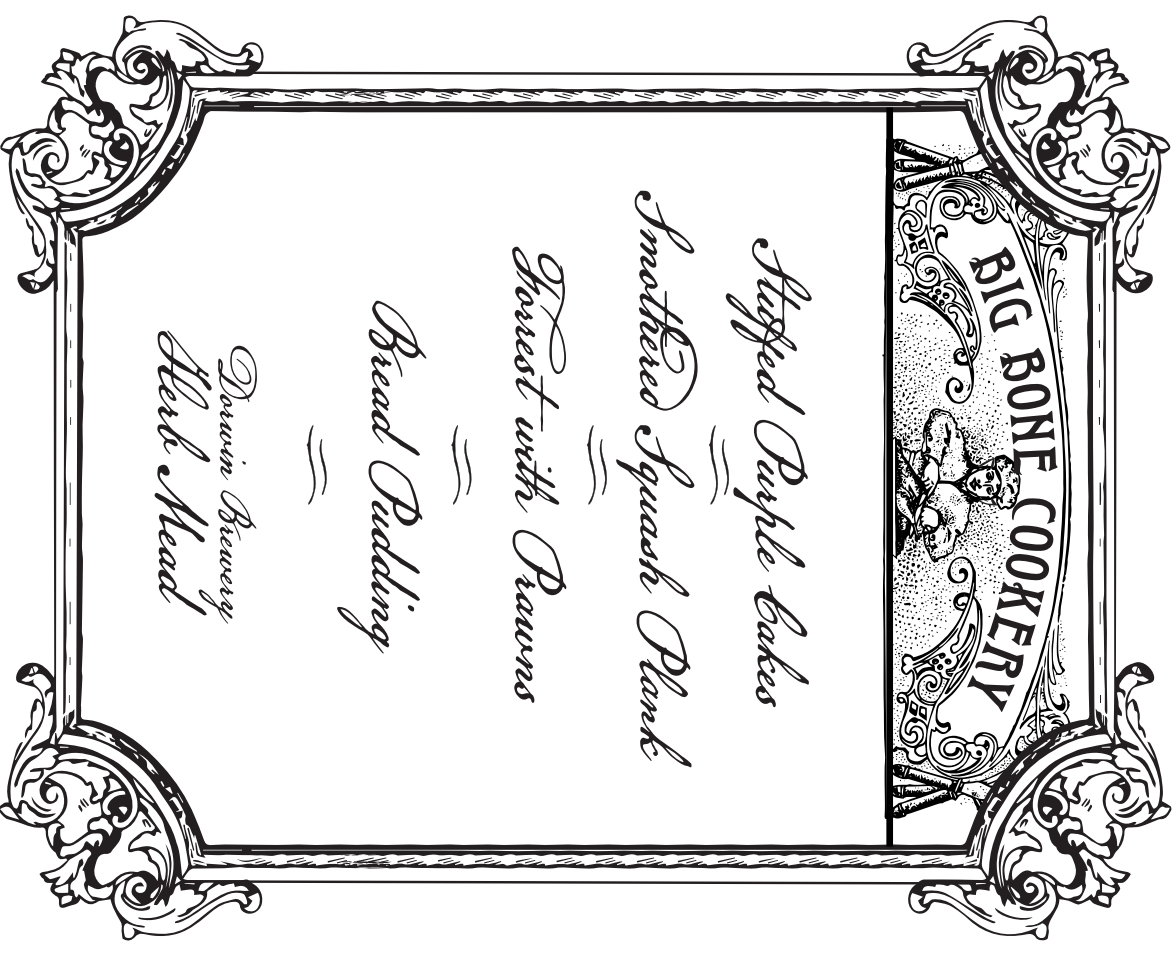 BIG BONE COOKERY
Stuffed Purple Cakes
Smothered Squash Plank
Forrest with Prawns
Bread Pudding
Dorwin Brewery
Herb Mead